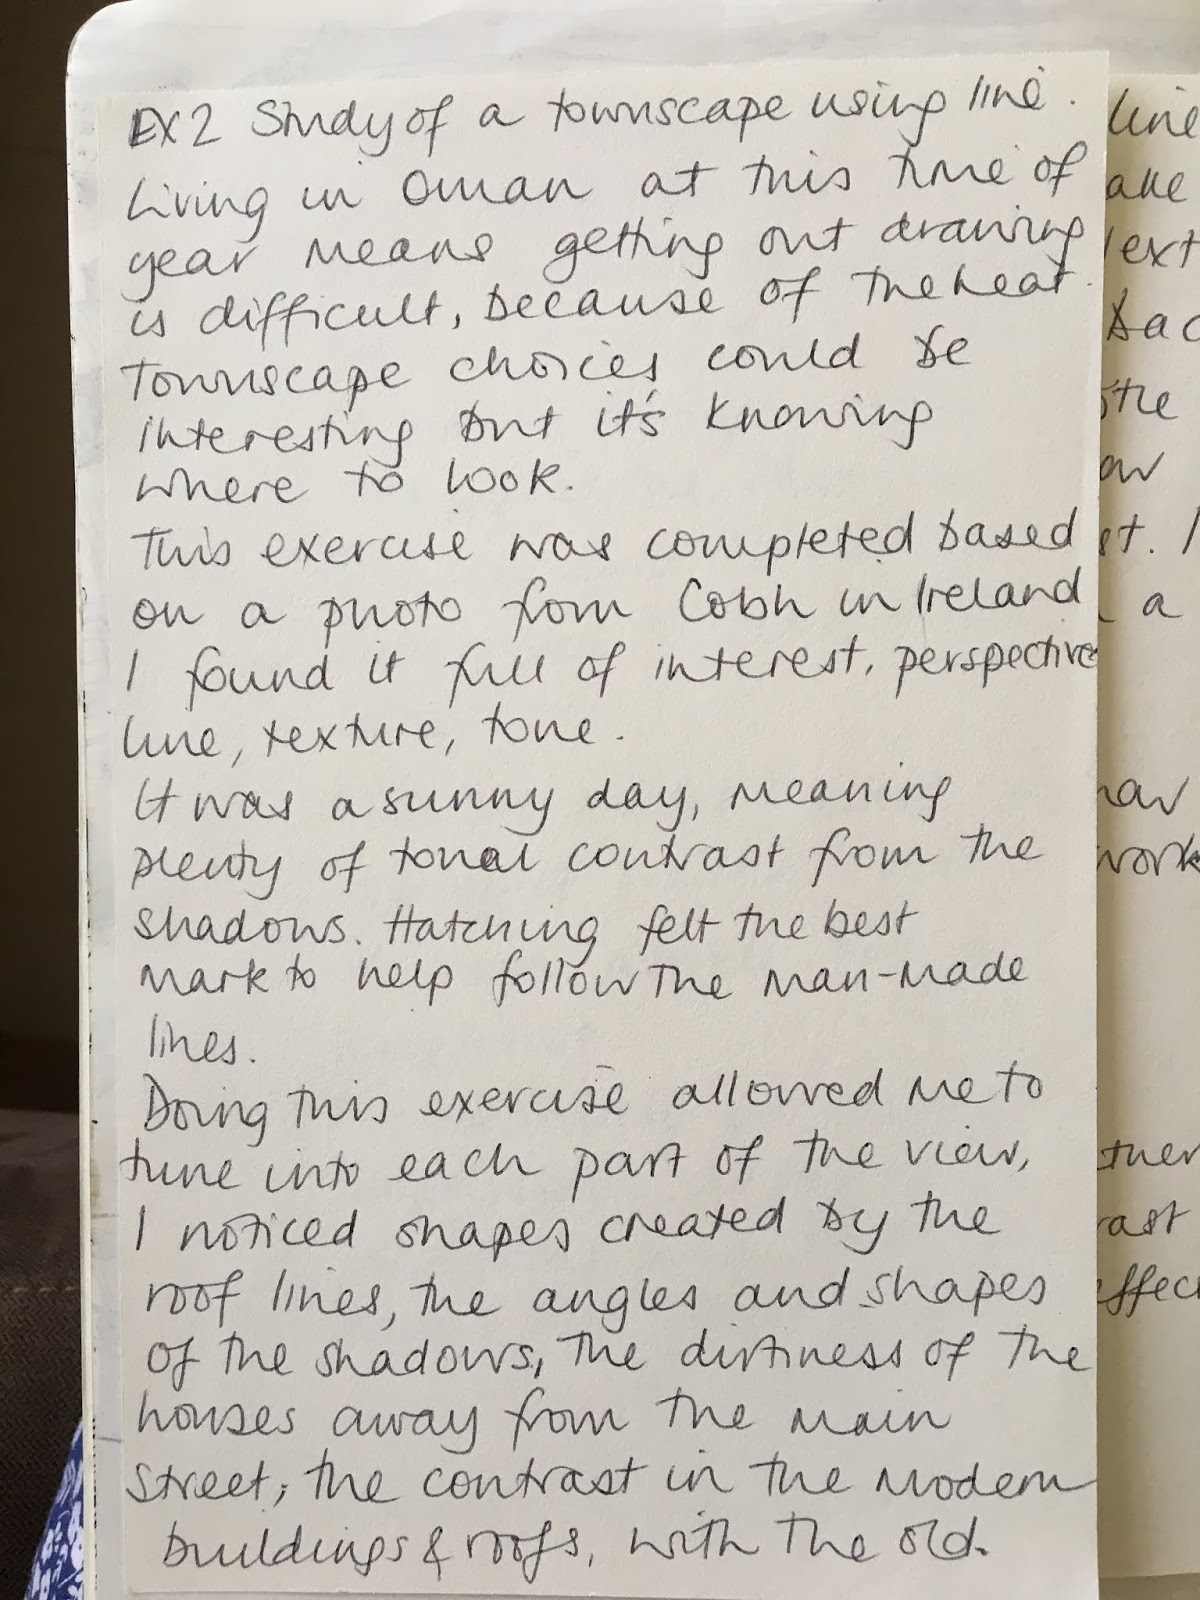 EX2 Study of a townscape using line.
Living in Oman at this time of
year means getting out drawing
is difficult, because of the heat.
Townscape choices could be
interesting but it's knowing
where to look.
This exercise was completed based
on a photo from Cobh in Ireland
I found it full of interest, perspective
line, texture, tone.
It was a sunny day, meaning
plenty of tonal contrast from the
shadows. Hatching felt the best
mark to help follow the man-made
lines.
Doing this exercise allowed me to
tune into each part of the view,
I noticed shapes created by the
roof lines, the angles and shapes
of the shadows, the dirtiness of the
houses away from the main
street, the contrast in the modern
buildings & roofs, with the old.
line
ext
the
st. I
a
work
ther
ast
effec